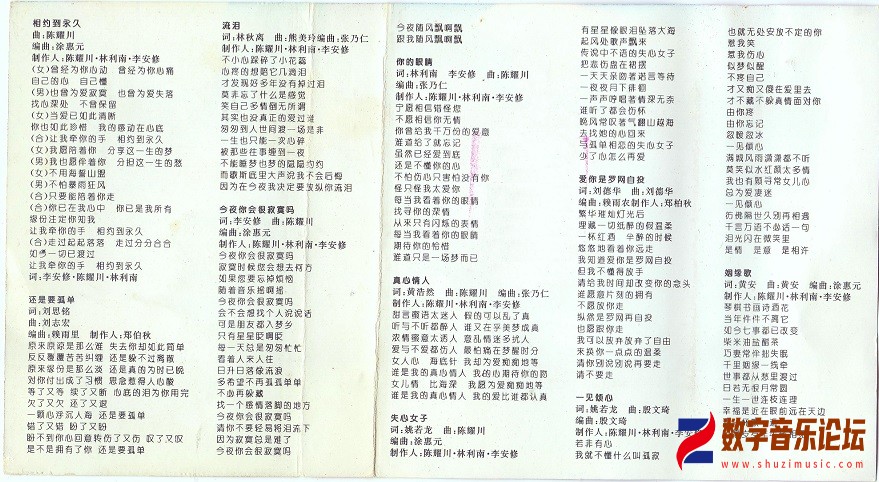 相约到永久
曲:陈耀川
编曲:涂惠元
制作人:陈耀川·林利南·李安修
(女)曾经为你心动 曾经为你心痛
自己的心 自己懂
(男)也曾为爱寂寞 也曾为爱失落
找心深处 不曾保留
(女)当爱已如此清晰
你也如此珍惜 我的感动在心底
(合)让我牵你的手 相约到永久
(女)我愿陪着你 分享这一生的梦
(男)我也愿伴着你 分担这一生的愁
(女)不用海誓山盟
(男)不怕暴雨狂风
(合)只要能陪着你走
(合)你已在我心中 你已是我所有
缘份注定你知我
让我牵你的手 相约到永久
(合)走过起起落落 走过分分合合
如今一切已渡过
让我牵你的手 相约到永久
词:李安修·陈耀川·林利南
还是要孤单
词:刘思铭
曲:刘志宏
编曲:赖雨里 制作人:郑伯秋
原来原谅是那么难 失去你却如此简单
反反覆覆苦苦纠缠 还是躲不过离散
原来缘份是那么淡 还是真的为时已晚
对你付出成了习惯 思念惹得人心酸
等了又等 续了又断 心底的泪为你用完
欠了又欠 还了又还
一颗心浮沉人海 还是要孤单
错了又错 盼了又盼
盼不到你心回意转伤了又伤 叹了又叹
是不是拥有了你 还是要孤单
流泪
词:林秋离 曲:熊美玲编曲:张乃仁
制作人:陈耀川·林利南·李安修
不小心踩碎了小花篮
心疼的想陪它几滴泪
才发现好多年没有掉过泪
莫非忘了什么是感觉
笑自己多情倒无所谓
其实也没真正的爱过谁
匆匆到人世间渡一场是非
一生也只能一次心碎
被那些往事缠到一夜
不能睡梦也梦的隐隐约约
而歇斯底里大声说我不会后悔
因为在今夜我决定要放纵你流泪
今夜你会很寂寞吗
词:李安修 曲:陈耀川
编曲:涂惠元
制作人:陈耀川·林利南·李安修
今夜你会很寂寞吗
寂寞时候您会想去何方
如果您要忘掉烦恼
随着音乐摇啊摇
今夜你会很寂寞吗
会不会想找个人说说话
可是朋友都入梦乡
只有星星眨啊眨
每一天总是匆匆忙忙
看着人来人往
日升日落像流浪
多希望不再孤孤单单
不必再躲藏
找一个感情落脚的地方
今夜你会很寂寞吗
请你不要轻易将泪流下
因为寂寞总是难了
今夜你会很寂寞吗
今夜随风飘啊飘
跟我随风飘啊飘
你的眼睛
词:林利南 李安修 曲:陈耀川
编曲:张乃仁
制作人:陈耀川·林利南·李安修
宁愿相信错怪您
不愿相信你无情
你曾给我千万份的爱意
难道给了就忘记
虽然已经爱到底
还是不懂你的心
不怕伤心只害怕没有你
怪只怪我太爱你
每当我看着你的眼睛
找寻你的深情
从来只有闪烁的表情
每当我看着你的眼睛
期待你的怜惜
难道只是一场梦而已
真心情人
词:黄浩然 曲:陈耀川 编曲:张乃仁
制作人:陈耀川·林利南·李安修
甜言蜜语太迷人 假的可以乱了真
听与不听都醉人 谁又在乎美梦成真
浓情蜜意太诱人 意乱情迷多扰人
爱与不爱都伤人 最怕痛在梦醒时分
女人心 海底针 我却为爱痴痴地等
谁是我的真心情人 我的心期待你的吻
女儿情 比海深 我愿为爱痴痴地等
谁是我的真心情人 我的爱比谁都认真
失心女子
词:姚若龙 曲:陈耀川
编曲:涂惠元
制作人:陈耀川·林利南·李安修
有星星像眼泪坠落大海
起风处歌声飘来
传说中不语的失心女子
把悲伤盘在裙摆
一天天亲吻著诺言等待
一夜夜月下徘徊
一声声哼唱著情深无奈
谁听了都会伤怀
晚风常叹著气翻山越海
去找她的心回来
与孤单相恋的失心女子
少了心怎么再爱
爱你是罗网自投
词:刘德华 曲:刘德华
编曲:赖雨农制作人:郑柏秋
繁华璀灿灯光后
埋藏一切纸醉的假温柔
一杯红酒 辛醉的时候
悠悠地看着你远走
我知道爱你是罗网自投
但我不懂得放手
请给我时间却改变你的念头
谁愿意片刻的拥有
不愿放你走
纵然是罗网再自投
也愿跟你走
我可以放弃放弃了自由
来换你一点点的温柔
请你别说别说再要走
请不要走
一见倾心
词:姚若龙 曲:殷文琦
编曲:殷文琦
制作人:陈耀川·林利南·李安修
若非有心
我就不懂什么叫孤寂
也就无处安放不定的你
惹我笑
惹我伤心
似梦似醒
不疼自己
才又痴又傻在爱里去
才不藏不躲真情面对你
由你疼
由你忘记
忽暖忽冰
一见倾心
满城风雨潇潇都不听
莫笑似水红颜太多情
我也有颗寻常女儿心
总为爱凄迷
一见倾心
彷彿隔世久别再相遇
千言万语不必话一句
泪光闪在微笑里
是情 是意 是相许
姻缘歌
词:黄安 曲:黄安 编曲:涂惠元
制作人:陈耀川·林利南·李安修
琴棋书画诗酒花
当年件件不离它
如今七事都已改变
柴米油盐酱茶
巧妻常伴拙夫眠
千里姻缘一线牵
世事都从愁里要过
日若无根月常圆
一生一世连枝连理
幸福是近在眼前远在天边
数字音乐论坛
www.shuzimusic.com